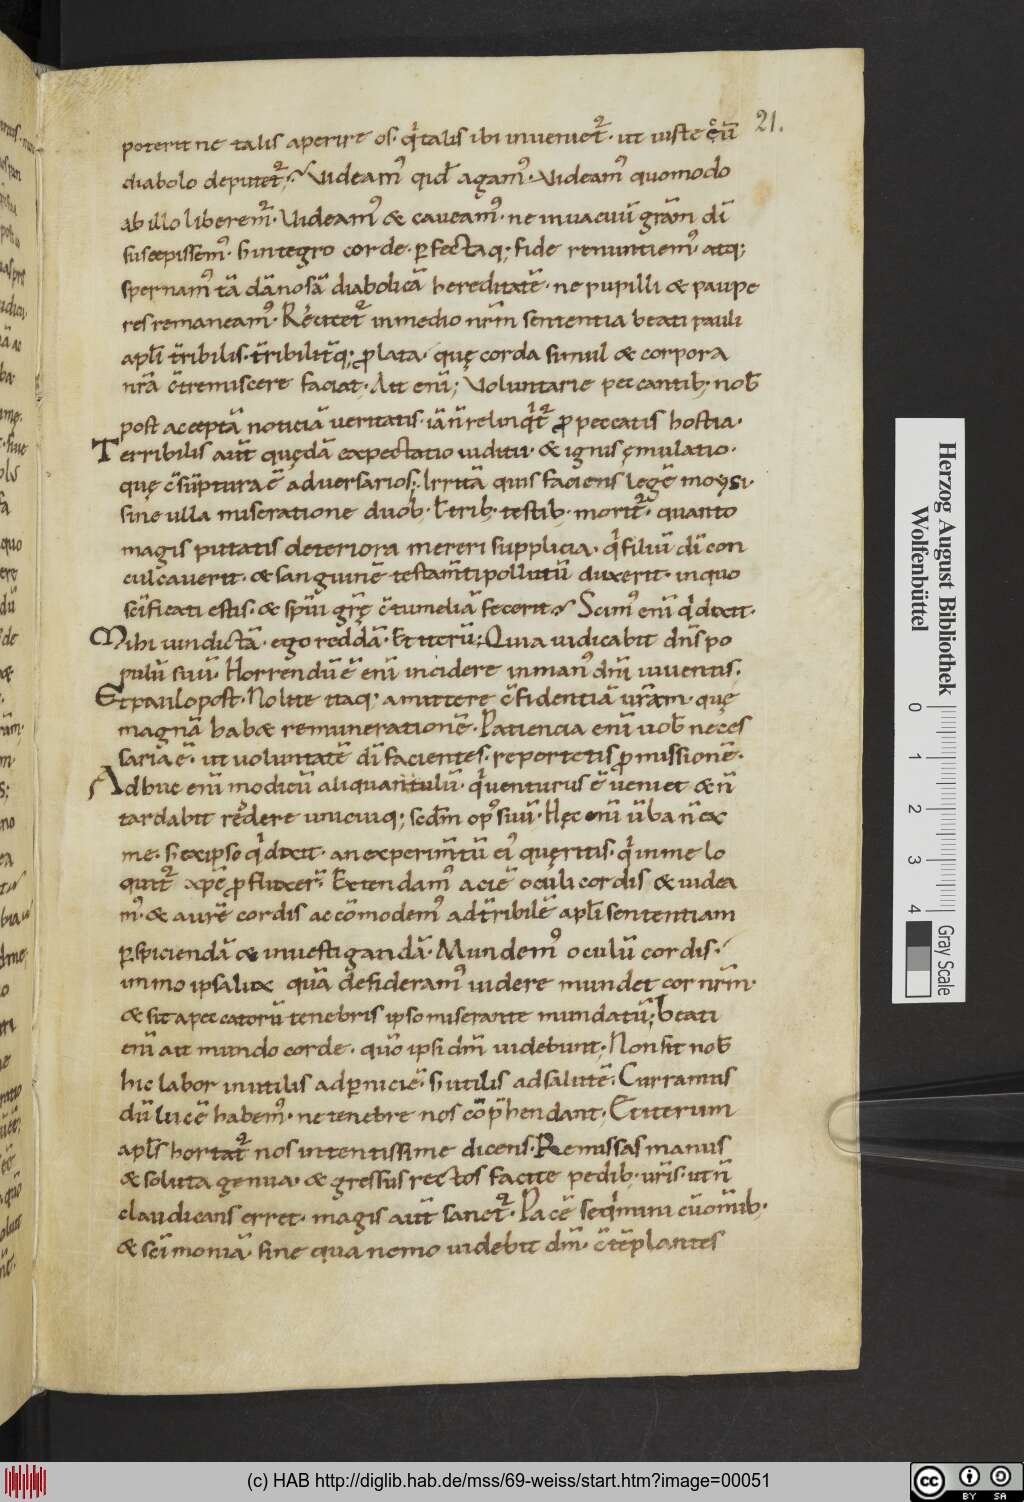 21.
poterit ne talis aperire os· qͥ talis ibi inveniet᷑· ut iuste cͤ eū
diabolo deputet᷑;· Videam᷒ qid̄ agam᷒· Videam᷒ quomodo
ab illo liberem᷒· Videam᷒ & caveam᷒· ne in vacuū grām dī
suscepissem᷒· s̄ integro corde· ꝑfectaq; fide renuntiem᷒ atq;
spernam᷒ tā dānosā diabolicā hereditatē· ne pupilli & paupe
res remaneam᷒· Recitet᷑ in medio nr̄m sententia beati pauli
apl̄i t̄ribilis· t̄ribilit̄q; ꝓlata· quę corda simul & corpora
nr̄a c̄tremiscere faciat· Ait enī; Voluntarie peccantib; nob̄
post acceptā noticiā veritatis· iā n̄ relinqͥt᷑ ꝓ peccatis hostia·
Terribilis aūt quędā expectatio iuditii· & ignis ęmulatio·
quę c̄sūptura ē adversarios; Irritā quis faciens legē moysi·
sine ulla miseratione duob· l̄ trib; testib; morit᷑· quanto
magis putatis deteriora mereri supplicia· qͥ filiū dī con
culcaverit· & sanguinē testam̄ti pollutū duxerit· in quo
sc̄ificati estis· & sp̄ui gr̄ę c̄tumeliā fecerit· Scim᷒ enī qͥ dixit·
Mihi vindictā· ego reddā· Et iterū; Quia iudicabit dn̄s po
pulū suū· Horrendū ē enī incidere in man᷒ dn̄i viventis·
Et paulo post· Nolite itaq; amittere c̄fidentiā vr̄am· quę
magnā hab& remunerationē· Patiencia enī vob̄ neces
saria ē· ut voluntatē dī facientes· reportetis ꝓmissionē·
Adhuc enī modicū aliquantulū· qͥ venturus ē veniet & n̄
tardabit reddere unicuiq; sc̄dm op᷒ suū· Hęc enī v̄ba n̄ ex
me· s̄ ex ipso qͥ dixit· an experim̄tū ei᷒ quęritis· qͥ in me lo
quit᷑ xp̄c ꝓfluxer̄· Extendam᷒ aciē oculi cordis & videa
m᷒· & aurē cordis accōmodem᷒ ad t̄ribilē apl̄i sententiam
ꝑspiciendā & investigandā· Mundem᷒ oculū cordis·
immo ipsa lux quā desideram᷒ videre mundet cor nr̄m·
& sit a peccatorū tenebris ipso miserante mundatū; Beati
enī ait mundo corde· qūo ipsi dm̄ videbunt; Non sit nob̄
hic labor inutilis ad ꝑniciē· s̄ utilis ad salutē· Curramus
dū lucē habem᷒· ne tenebre nos cōp̄hendant; Et iterum
apl̄s hortat᷑ nos intentissime dicens· Remissas manus
& soluta genua· & gressus rectos facite pedib; vr̄is· ut n̄
claudicans erret· magis aūt sanet᷑· Pacē seqͥmini cū om̄ib;·
& sc̄imoniā· sine qua nemo videbit dm̄· c̄tēplantes
Herzog August Bibliothek
Wolfenbüttel
0 1 2 3 4
Gray Scale
(c) HAB http://diglib.hab.de/mss/69-weiss/start.htm?image=00051
cc BY SA